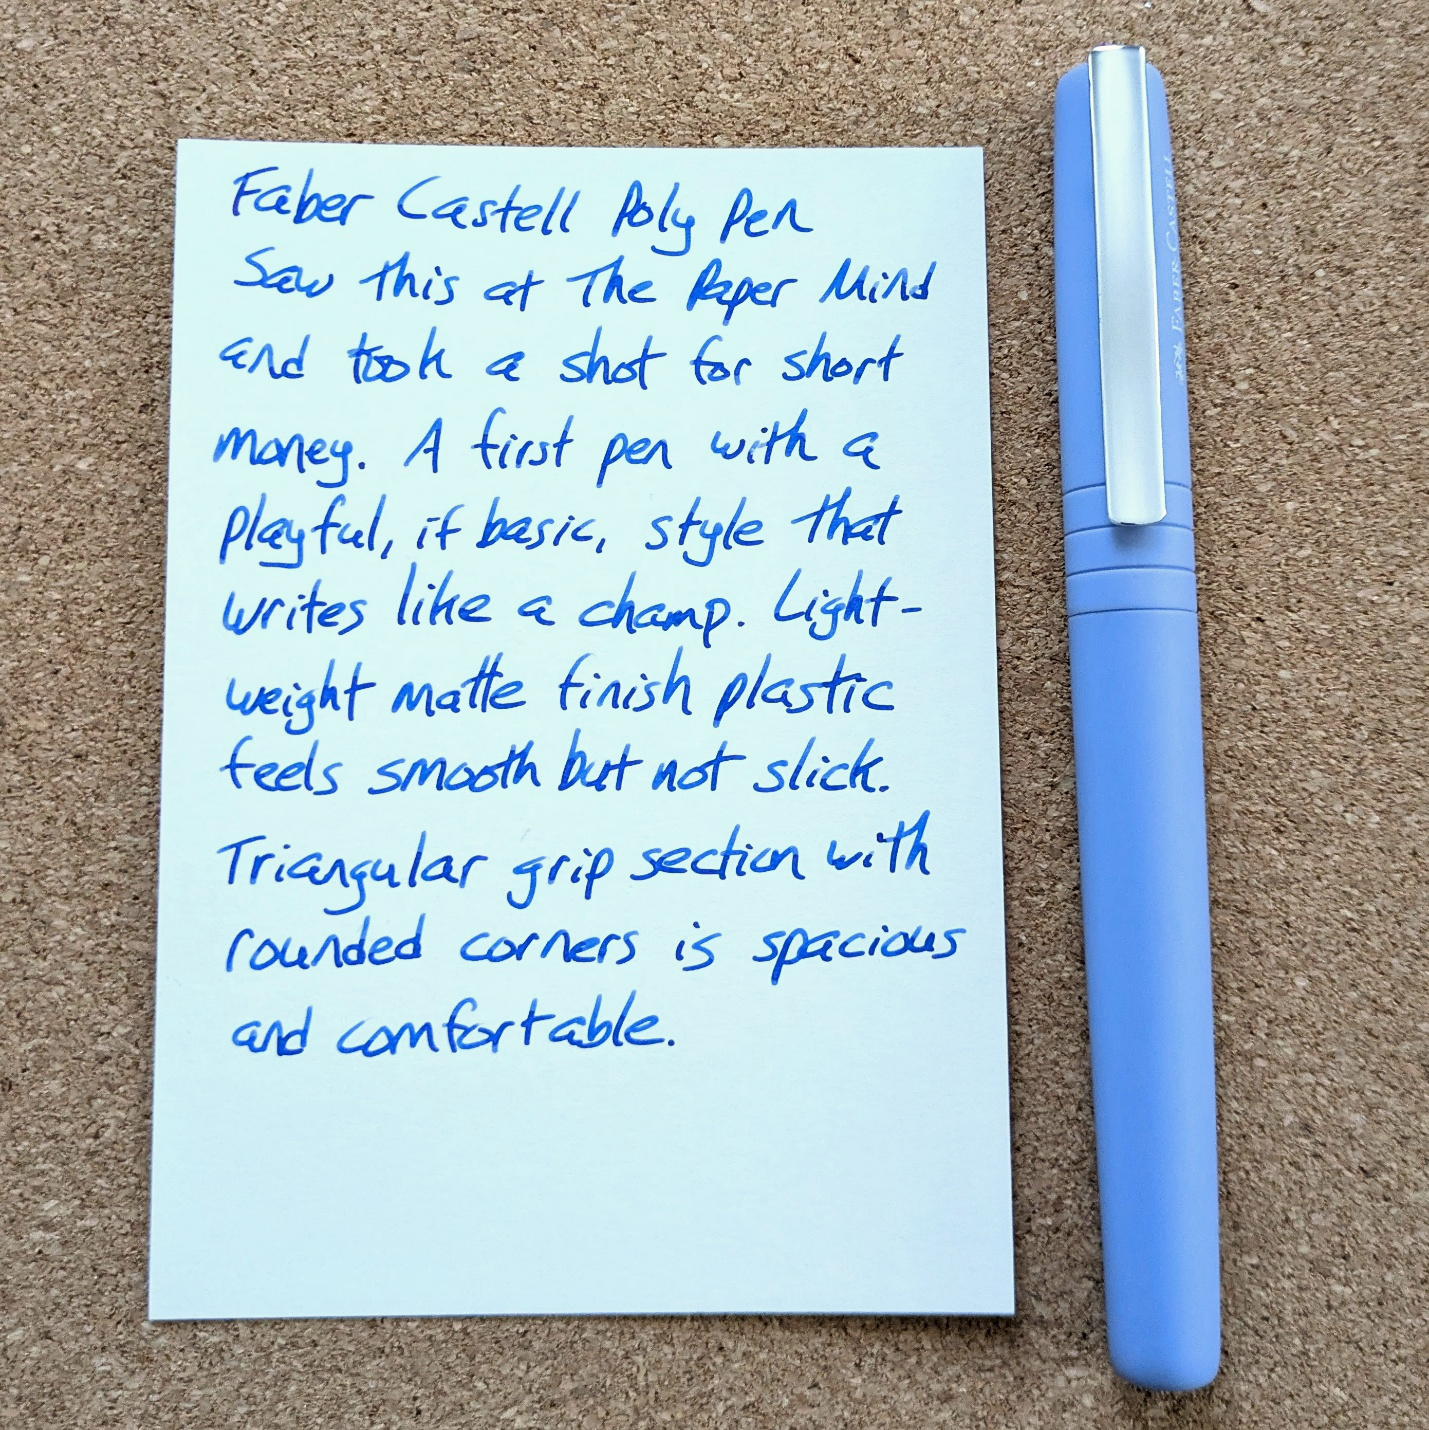 Faber Castell Poly Pen
Saw this at The Paper Mind
and took a shot for short
money. A first pen with a
playful, if basic, style that
writes like a champ. Light-
weight matte finish plastic
feels smooth but not slick.
Triangular grip section with
rounded corners is spacious
and comfortable.
FABER-CASTELL